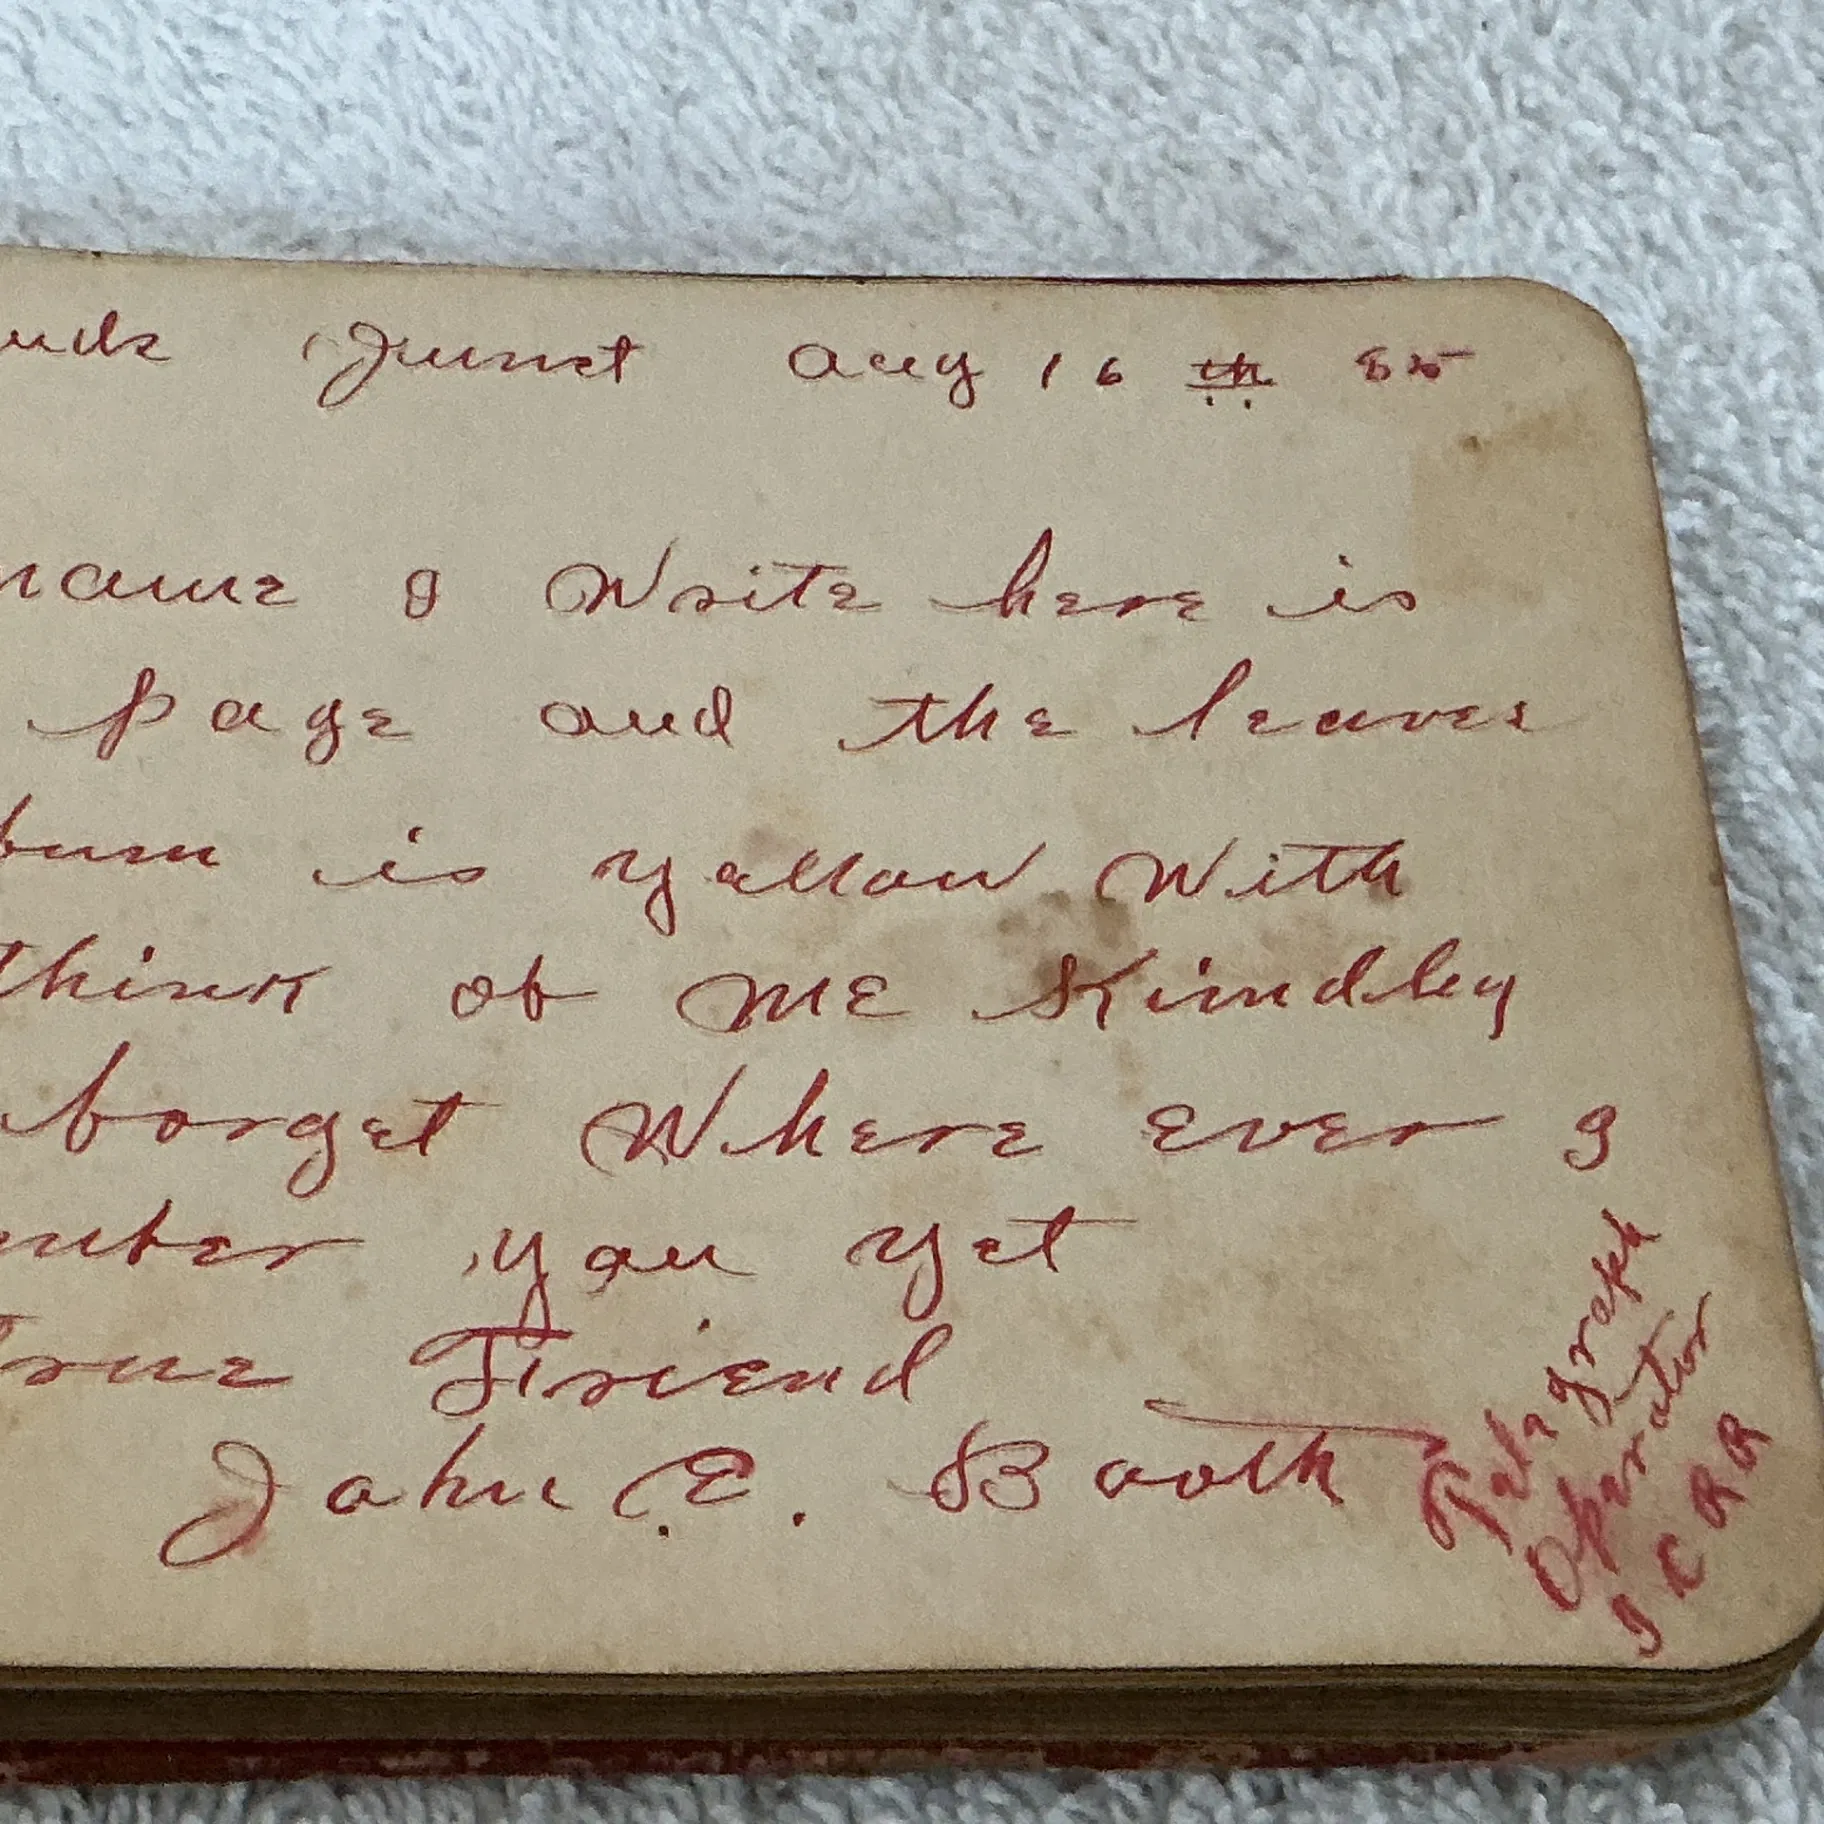 Junct Aug 16th 85
name I Write here is
page and the leaves
bum is yellow With
think of Me Kindley
forget Where ever I
mber you yet
True Friend
John E. Booth
Telegraph
Operator
I C R R